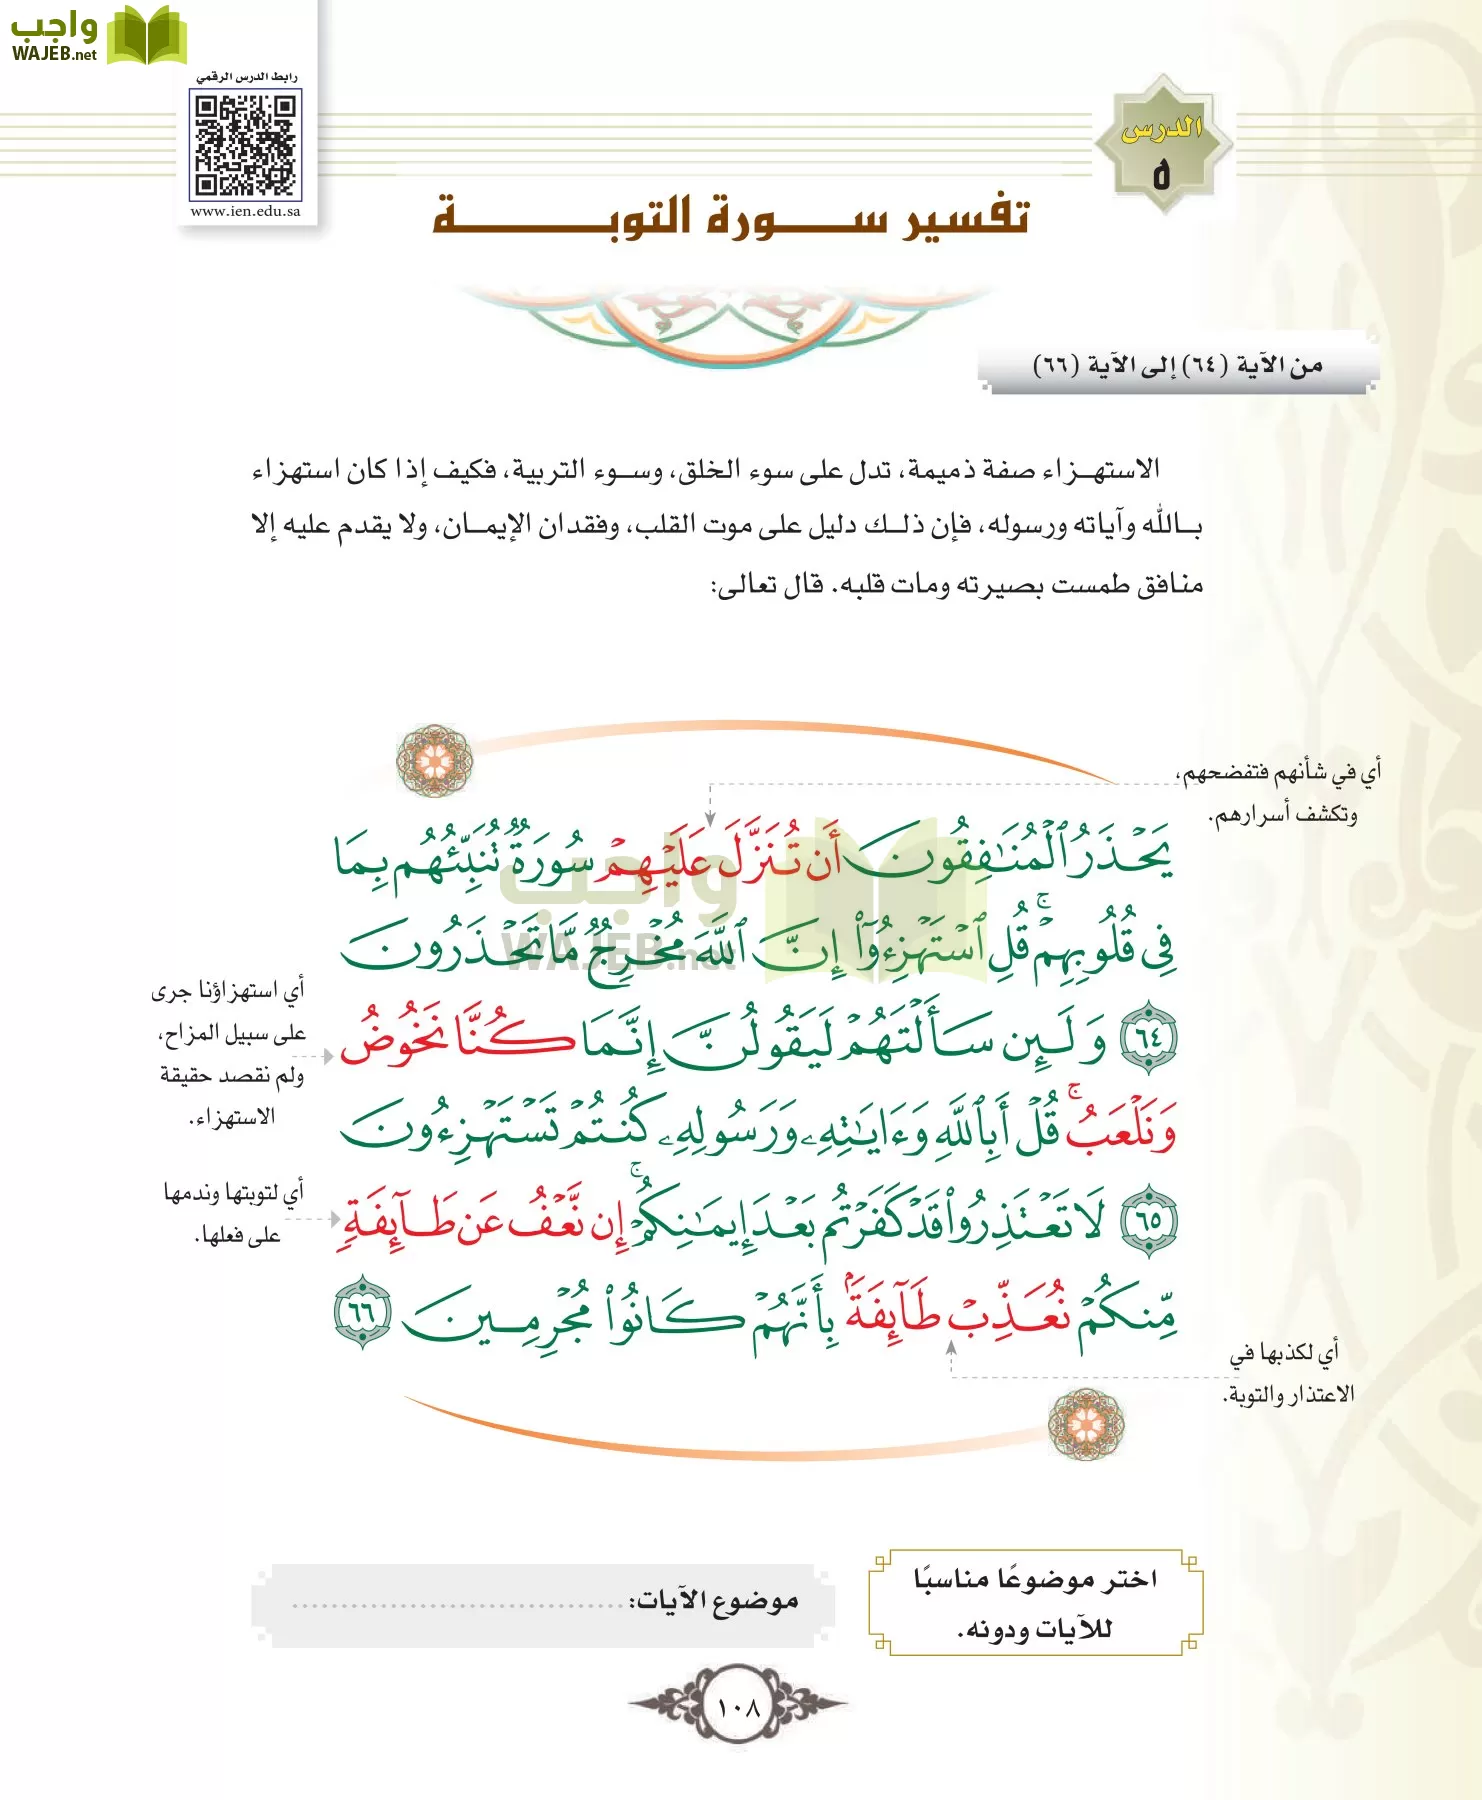 واجب
WAJEB.net
رابط الدرس الرقمي
www.ien.edu.sa
الدرس
٥
تفسير سورة التوبة
من الآية (٦٤) إلى الآية (٦٦)
الاستهزاء صفة ذميمة، تدل على سوء الخلق، وسوء التربية، فكيف إذا كان استهزاء
بالله وآياته ورسوله، فإن ذلك دليل على موت القلب، وفقدان الإيمان، ولا يقدم عليه إلا
منافق طمست بصيرته ومات قلبه. قال تعالى:
أي في شأنهم فتفضحهم،
وتكشف أسرارهم.
يَحْذَرُ ٱلْمُنَٰفِقُونَ أَن تُنَزَّلَ عَلَيْهِمْ سُورَةٌ تُنَبِّئُهُم بِمَا
فِى قُلُوبِهِمْ ۚ قُلِ ٱسْتَهْزِءُوٓا۟ إِنَّ ٱللَّهَ مُخْرِجٌ مَّا تَحْذَرُونَ
٦٤ وَلَئِن سَأَلْتَهُمْ لَيَقُولُنَّ إِنَّمَا كُنَّا نَخُوضُ
وَنَلْعَبُ ۚ قُلْ أَبِٱللَّهِ وَءَايَٰتِهِۦ وَرَسُولِهِۦ كُنتُمْ تَسْتَهْزِءُونَ
٦٥ لَا تَعْتَذِرُوا۟ قَدْ كَفَرْتُم بَعْدَ إِيمَٰنِكُمْ ۚ إِن نَّعْفُ عَن طَآئِفَةٍ
مِّنكُمْ نُعَذِّبْ طَآئِفَةًۢ بِأَنَّهُمْ كَانُوا۟ مُجْرِمِينَ ٦٦
أي استهزاؤنا جرى
على سبيل المزاح،
ولم نقصد حقيقة
الاستهزاء.
أي لتوبتها وندمها
على فعلها.
أي لكذبها في
الاعتذار والتوبة.
واجب
WAJEB.net
اختر موضوعًا مناسبًا
للآيات ودونه.
موضوع الآيات: .................................
١٠٨